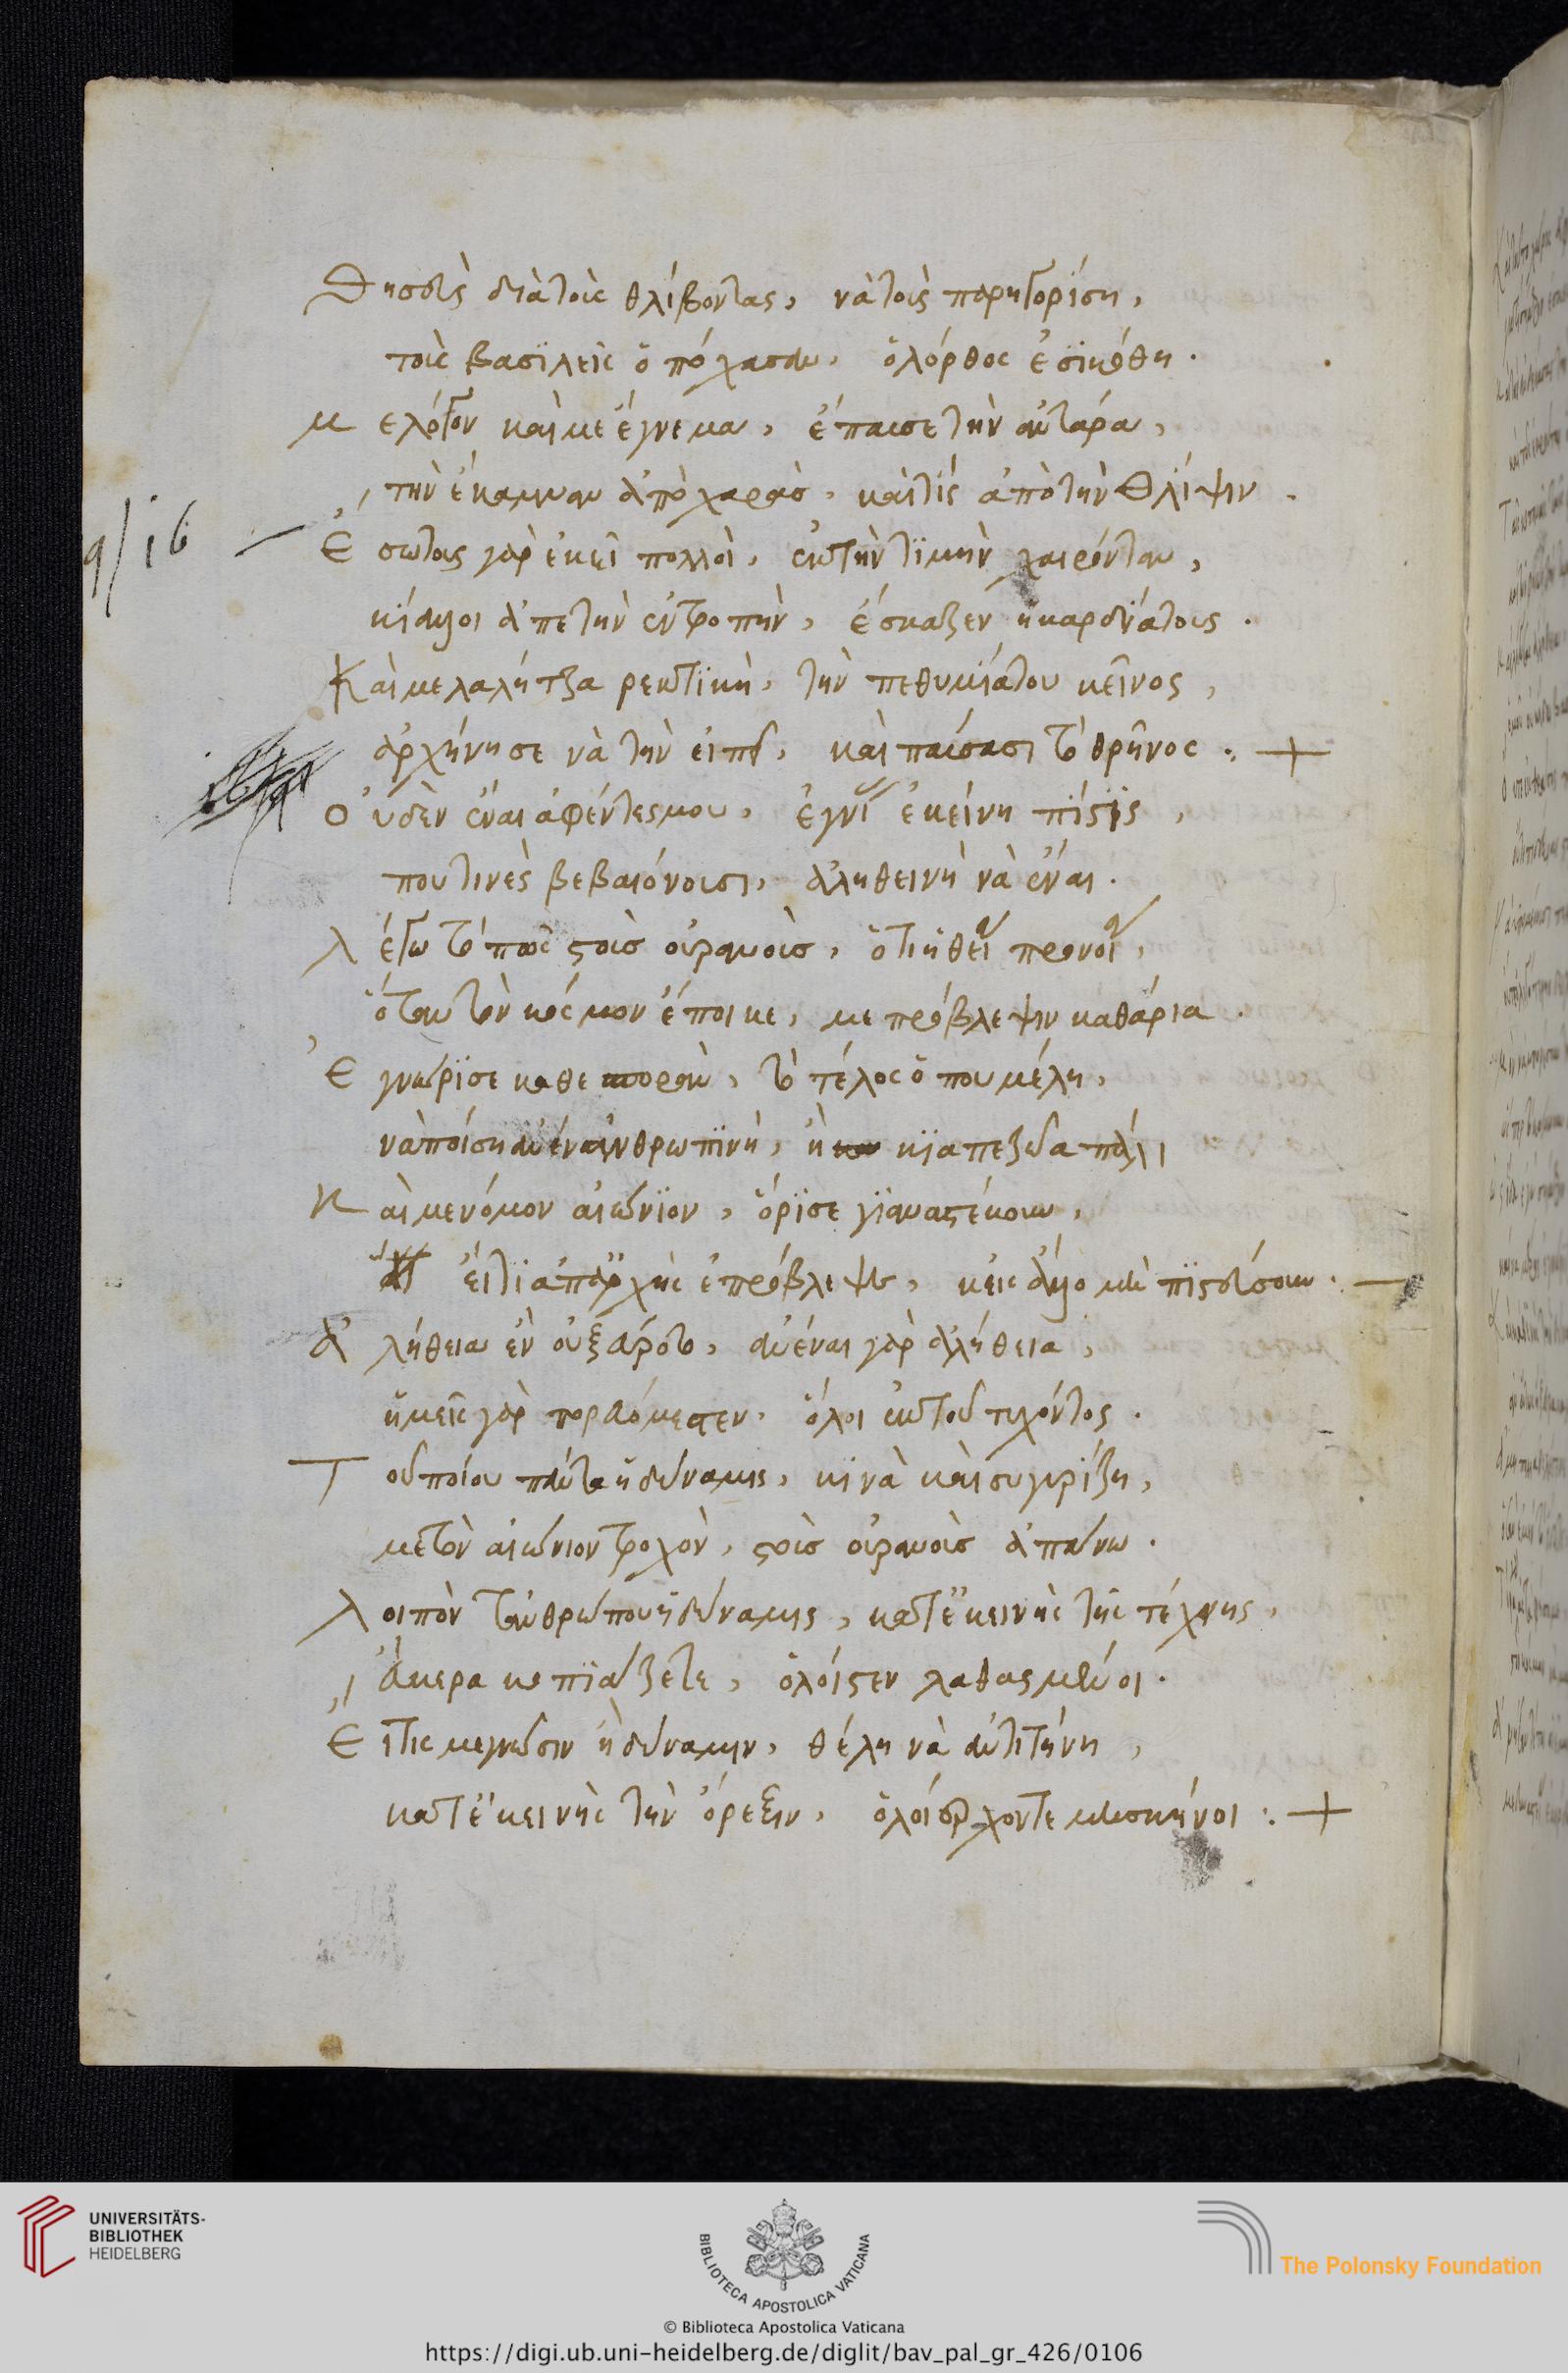 Θησεὺς διὰ τοὺς θλίβοντας, νὰ τοὺς παρηγορίση,
τοὺς βασϊλεῖς ὁ πόχασαν, ὁλόρθος ἐσϊκόθη.
Μ ε λόγον καὶ με έγνεμα, ἔπαισε τὴν ἀνταρα,
τὴν ἔκαμναν ἀπὸ χαρὰσ, καὶ τίς ἀπὸ τὴν θλίψιν.
9/16 —
Ἐ σωντας γὰρ ἐκεῖ πολλοὶ, ἐκ τὴν τϊμὴν χαιρόνταν,
κϊάλλοι ἀπε τὴν ἐντροπὴν, ἔσκαζεν ἡ καρδϊάτους.
Καὶ με λαλήτζα ρεκτϊκὴ, τὴν πεθυμιάτου κεῖνος,
ἀρχήνησε νὰ τὴν εἰπῆ, καὶ παίσασι τὸ θρῆνος :+
Ο ὐδὲν ἔναι ἀφέντες μου, ἐγνϊ ἐκείνη πίστϊς,
που τινὲς βεβαιόνουσι, ἀληθεινὴ νὰ ἔναι.
Λ έγω τὸ πῶς στοὺσ οὐρανοὺσ, ὅτι ἡ θεῖα πρόνοια,
ὅταν τὸν κόσμον ἔποικε, με πρόβλεψιν καθάρια.
Ἐ γνώρϊσε καθε , τὸ τέλος ὁ που μέλη,
νὰ ποίση ἀνένανθρωπϊνὴ, ἡ κϊαπεζὰ πάλι
Κ αὶ με νόμον αἰώνϊον, ὅρϊσε γϊανα στέκουν,
ἔιτϊ ἀπαρχῆς ἐπρόβλεψεν, κεις ἄλλο μὲν πϊστεύσουν. —
Ἀ λήθεια ἐν , ἀνέναι γὰρ ἀλήθεια,
ἡμεῖς γὰρ , ὅλοι ἐκ τοῦ τυχόντος.
Τ οῦ ποίου πάντα ἡ δύναμις, κϊνὰ καὶ συγυρίζη,
με τὸν αἰώνιον τροχὸν, στοὺσ οὐρανοὺσ ἀπάνω.
Λ οιπὸν τανθρώπου ἡ δύναμις, κατ ἐκεινῆς τῆς τέχνης,
ἄμερα κοπϊάζετε, ὁλοίστεν λαθασμένοι.
Ἐ ἴτις με γνῶσιν ἢ δύναμιν, θέλη νὰ ἀντιτήνη,
κατ ἐκεινῆς τὴν ὄρεξιν, ὁλοί :+
UNIVERSITÄTS-
BIBLIOTHEK
HEIDELBERG
BIBLIOTECA APOSTOLICA VATICANA
The Polonsky Foundation
© Biblioteca Apostolica Vaticana
https://digi.ub.uni-heidelberg.de/diglit/bav_pal_gr_426/0106